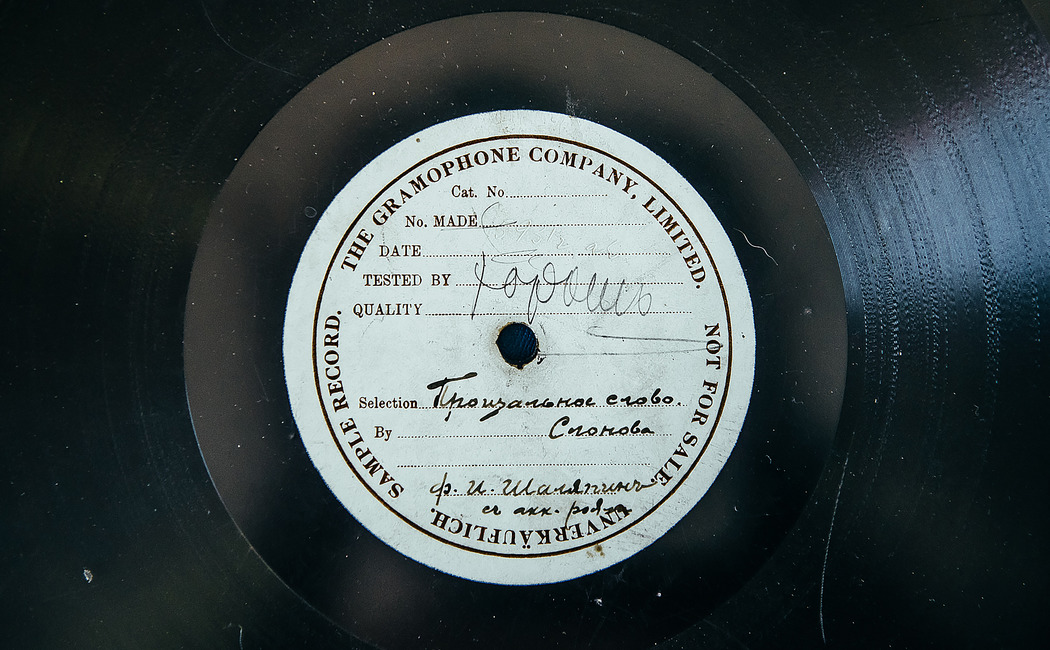 THE GRAMOPHONE COMPANY, LIMITED.
Cat. No.
No. MADE
DATE
TESTED BY
хорошъ
QUALITY
Selection Прощальное слово.
By Слонова
Ф. И. Шаляпинъ
съ акк. рояля
NOT FOR SALE.
UNVERKÄUFLICH.
SAMPLE RECORD.